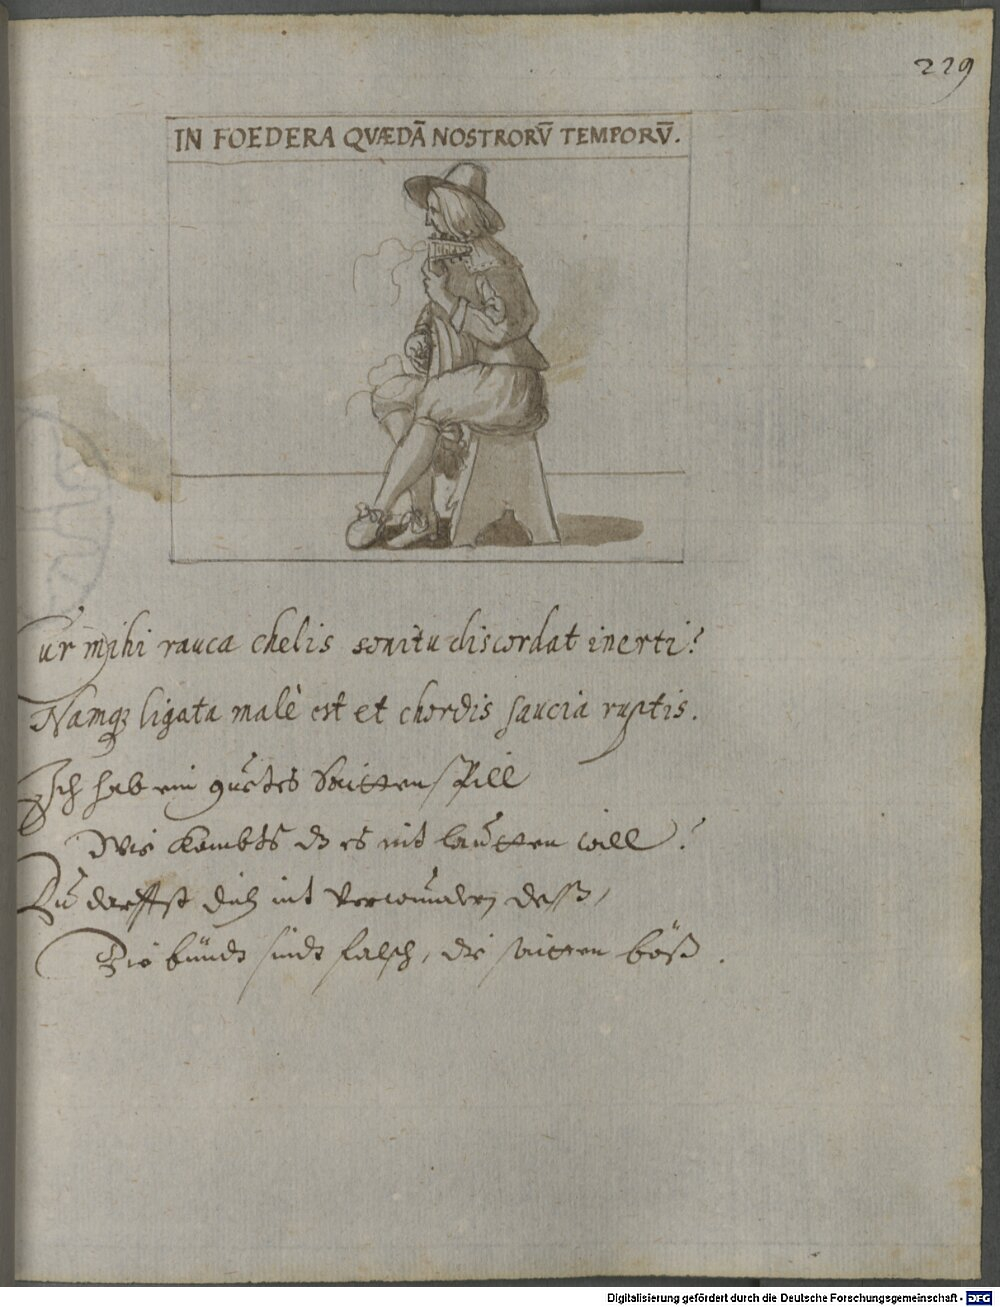 229
IN FOEDERA QVÆDĀ NOSTRORV̄ TEMPORV̄.
Cur mihi rauca chelis sonitu discordat inerti?
Namq; ligata malè est et chordis saucia ruptis.
Ich hab ein guetes Saittenspill
Wie kombts dz es nit lautten will?
Du darffst dich nit verwundern desß,
Die bündt sindt falsch, die saitten böß.
Digitalisierung gefördert durch die Deutsche Forschungsgemeinschaft - DFG